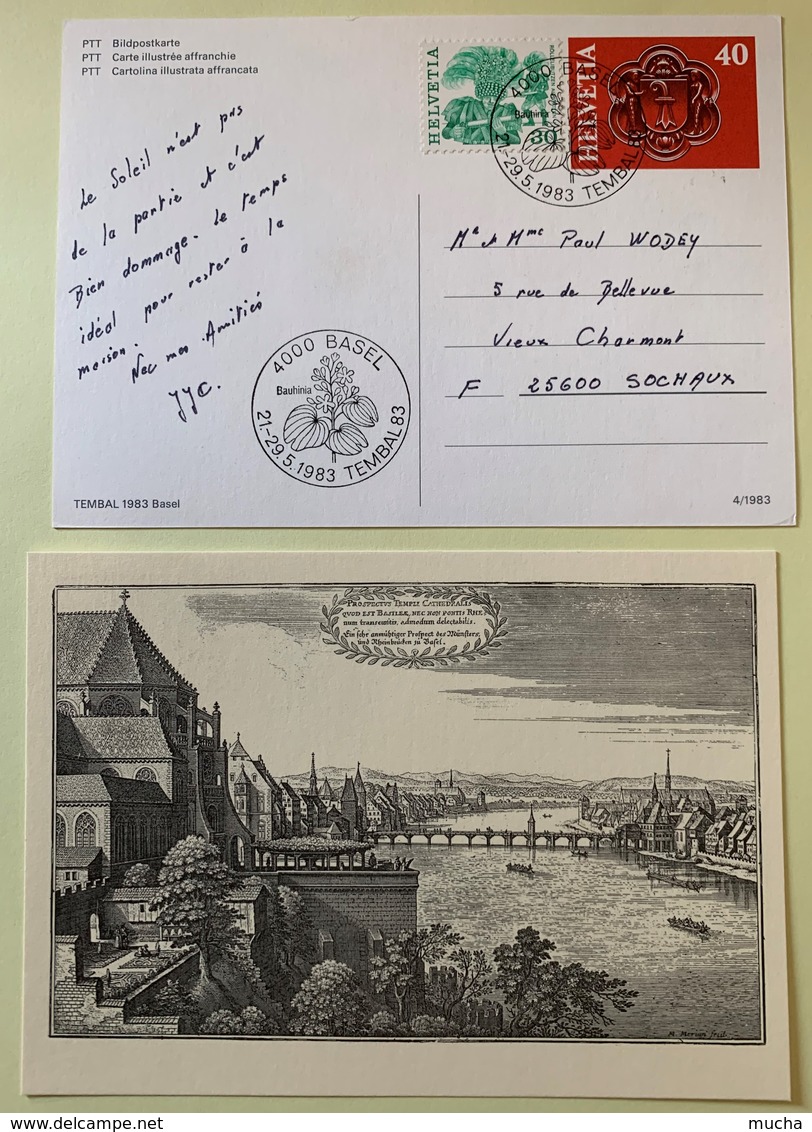 PTT Bildpostkarte
PTT Carte illustrée affranchie
PTT Cartolina illustrata affrancata
HELVETIA
30
HELVETIA
40
4000 BASEL
Bauhinia
21.-29.5.1983 TEMBAL 83
Le Soleil n'est pas
de la partie et c'est
Bien dommage. Le temps
idéal pour rester à la
maison.
Avec mes Amitiés
JJC.
Mr et Mme Paul WODEY
5 rue de Bellevue
Vieux Charmont
F 25600 SOCHAUX
4000 BASEL
Bauhinia
21.-29.5.1983 TEMBAL 83
TEMBAL 1983 Basel
4/1983
PROSPECTVS TEMPLI CATHEDRALIS
QVOD EST BASILEÆ, NEC NON PONTIS RHE
num transeuntis, admodum delectabilis.
Ein sehr anmühtiger Prospect des Münsters,
und Rheinbrücken zu Basel.
M. Merian fecit.
delcampe.net
mucha